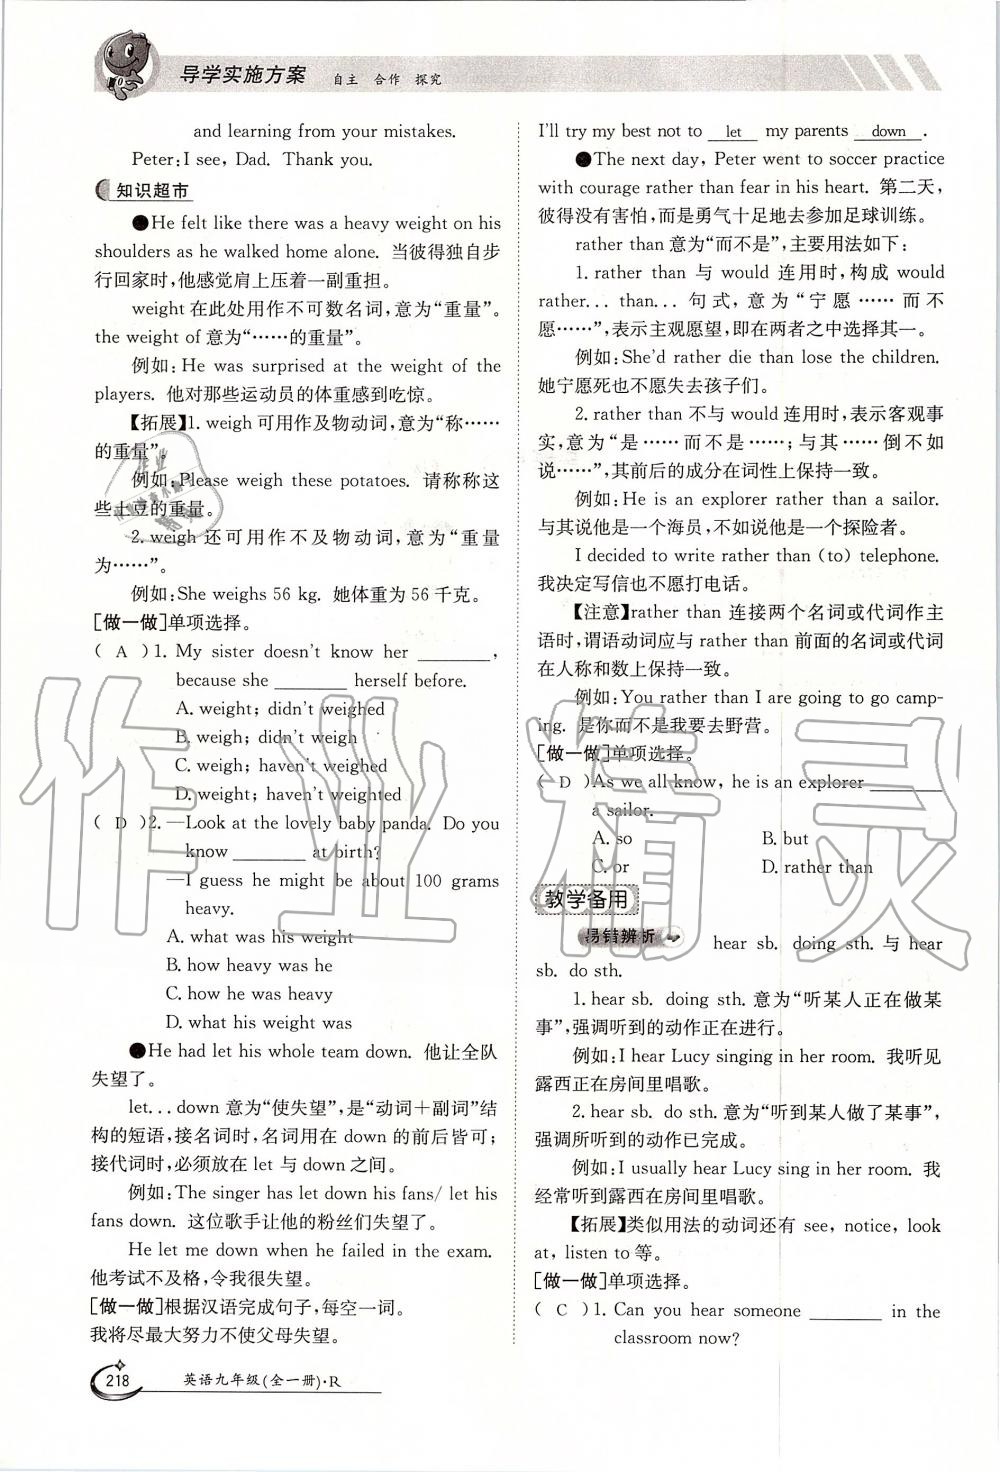 导学实施方案 自主 合作 探究
and learning from your mistakes.
Peter:I see, Dad. Thank you.
知识超市
●He felt like there was a heavy weight on his
shoulders as he walked home alone. 当彼得独自步
行回家时,他感觉肩上压着一副重担。
weight在此处用作不可数名词,意为“重量”。
the weight of意为“……的重量”。
例如:He was surprised at the weight of the
players. 他对那些运动员的体重感到吃惊。
【拓展】1. weigh可用作及物动词,意为“称……
的重量”。
例如:Please weigh these potatoes. 请称称这
些土豆的重量。
2. weigh还可用作不及物动词,意为“重量
为……”。
例如:She weighs 56 kg. 她体重为56千克。
[做一做]单项选择。
( A )1. My sister doesn't know her ________,
because she ________ herself before.
A. weight; didn't weighed
B. weigh; didn't weigh
C. weigh; haven't weighed
D. weight; haven't weighted
( D )2. —Look at the lovely baby panda. Do you
know ________ at birth?
—I guess he might be about 100 grams
heavy.
A. what was his weight
B. how heavy was he
C. how he was heavy
D. what his weight was
●He had let his whole team down. 他让全队
失望了。
let... down意为“使失望”,是“动词+副词”结
构的短语,接名词时,名词用在down的前后皆可;
接代词时,必须放在let与down之间。
例如:The singer has let down his fans/ let his
fans down. 这位歌手让他的粉丝们失望了。
He let me down when he failed in the exam.
他考试不及格,令我很失望。
[做一做]根据汉语完成句子,每空一词。
我将尽最大努力不使父母失望。
I'll try my best not to let my parents down .
●The next day, Peter went to soccer practice
with courage rather than fear in his heart. 第二天,
彼得没有害怕,而是勇气十足地去参加足球训练。
rather than意为“而不是”,主要用法如下:
1. rather than与would连用时,构成would
rather... than...句式,意为“宁愿……而不
愿……”,表示主观愿望,即在两者之中选择其一。
例如:She'd rather die than lose the children.
她宁愿死也不愿失去孩子们。
2. rather than不与would连用时,表示客观事
实,意为“是……而不是……;与其……倒不如
说……”,其前后的成分在词性上保持一致。
例如:He is an explorer rather than a sailor.
与其说他是一个海员,不如说他是一个探险者。
I decided to write rather than (to) telephone.
我决定写信也不愿打电话。
【注意】rather than连接两个名词或代词作主
语时,谓语动词应与rather than前面的名词或代词
在人称和数上保持一致。
例如:You rather than I are going to go camp-
ing. 是你而不是我要去野营。
[做一做]单项选择。
( D )As we all know, he is an explorer ________
a sailor.
A. so B. but
C. or D. rather than
教学备用
易错辨析 hear sb. doing sth. 与 hear
sb. do sth.
1. hear sb. doing sth. 意为“听某人正在做某
事”,强调听到的动作正在进行。
例如:I hear Lucy singing in her room. 我听见
露西正在房间里唱歌。
2. hear sb. do sth. 意为“听到某人做了某事”,
强调所听到的动作已完成。
例如:I usually hear Lucy sing in her room. 我
经常听到露西在房间里唱歌。
【拓展】类似用法的动词还有see, notice, look
at, listen to等。
[做一做]单项选择。
( C )1. Can you hear someone ________ in the
classroom now?
218 英语九年级(全一册)·R
作业精灵